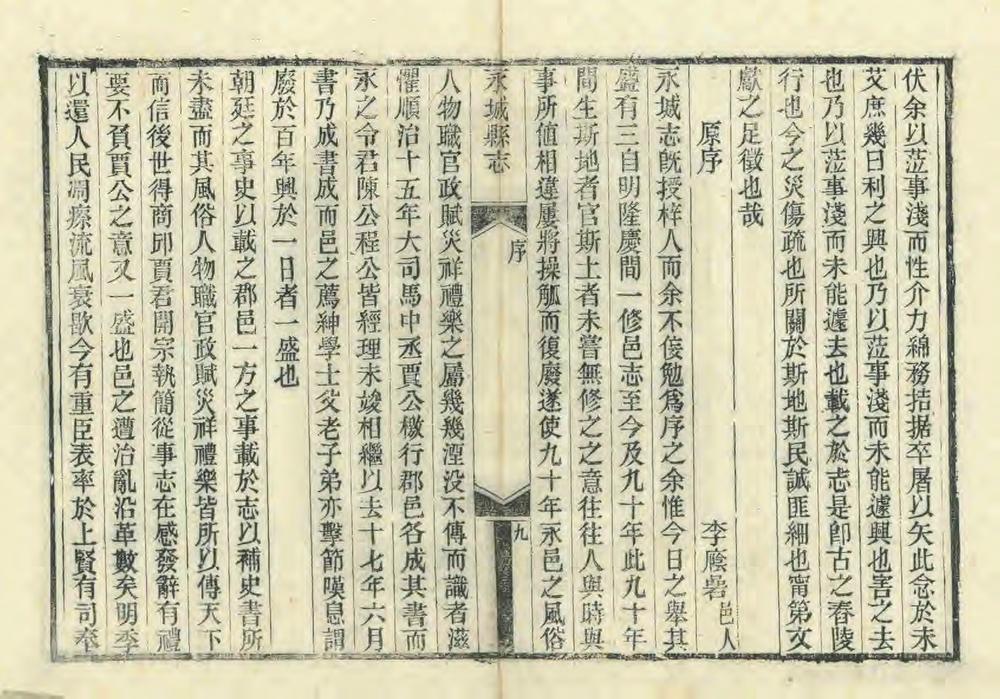 伏余以蒞事淺而性介力綿務拮据卒屠以矢此念於未
艾庶幾曰利之興也乃以蒞事淺而未能遽興也害之去
也乃以蒞事淺而未能遽去也載之於志是卽古之春陵
行也今之災傷疏也所關於斯地斯民誠匪細也甯第文
獻之足徵也哉
原序
李廕喦邑人
永城志旣授梓人而余不佞勉爲序之余惟今日之舉其
盛有三自明隆慶間一修邑志至今及九十年此九十年
間生斯地者官斯土者未嘗無修之之意往往人與時與
事所値相違屢將操觚而復廢遂使九十年永邑之風俗
永城縣志
序
九
人物職官政賦災祥禮樂之屬幾幾湮没不傳而識者滋
懼順治十五年大司馬中丞賈公檄行郡邑各成其書而
永之令君陳公程公皆經理未竣相繼以去十七年六月
書乃成書成而邑之薦紳學士父老子弟亦擊節嘆息謂
廢於百年興於一日者一盛也
朝廷之事史以載之郡邑一方之事載於志以補史書所
未盡而其風俗人物職官政賦災祥禮樂皆所以傳天下
而信後世得商邱賈君開宗執簡從事志在感發辭有禮
要不負賈公之意又一盛也邑之遭治亂沿革數矣明季
以還人民凋瘵流風衰歇今有重臣表率於上賢有司奉